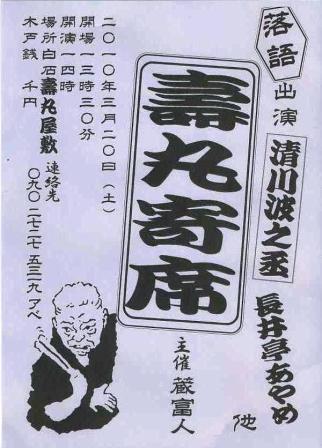 落語
出演
清川波之丞
長井亭あやめ
他
壽丸寄席
主催 蔵富人
二〇一〇年三月二〇日(土)
開場一三時三〇分
開演一四時
場所白石壽丸屋敷
連絡先
〇九〇 二七二七 五三一九 アベ
木戸銭 千円